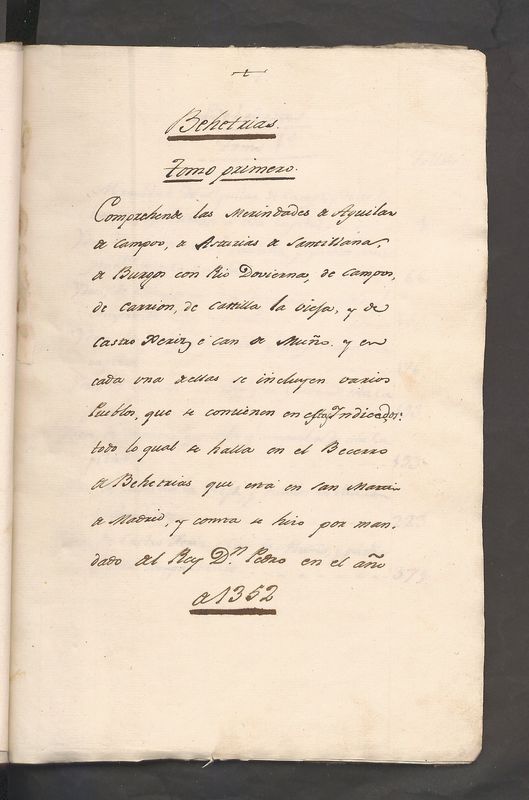 Behetrias.
Tomo primero.
Comprehende las Merindades de Aguilar
de campoo, de Asturias de Santillana,
de Burgos con Rio Dovierna, de Campos,
de Carrion, de Castilla la vieja, y de
Castro Xeriz, é can de Muño. y en
cada una dellas se incluyen varios
Pueblos, que se contienen en estos Indices:
todo lo qual se halla en el Becerro
de Behetrias que está en San Martin
de Madrid, y consta se hizo por man-
dado del Rey D.n Pedro en el año
de 1352